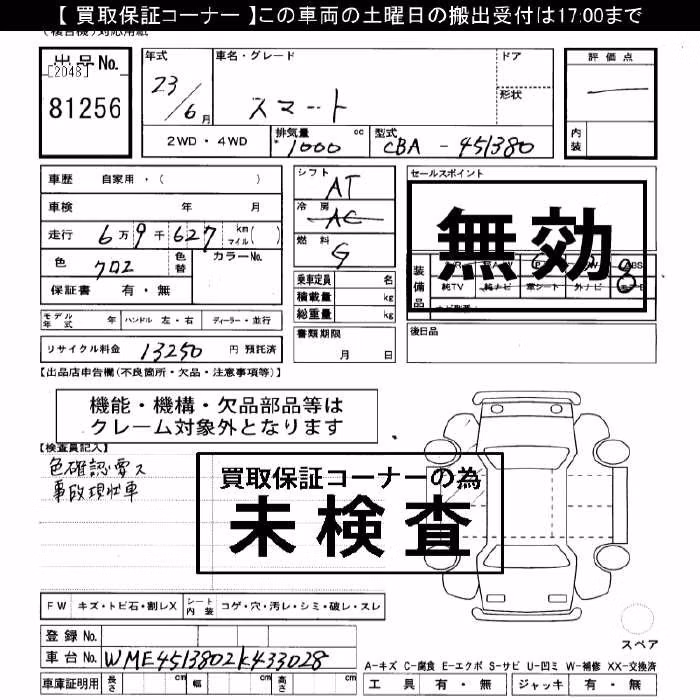 【 買取保証コーナー 】この車両の土曜日の搬出受付は17:00まで
出品No.
[2048]
81256
年式
23/6月
車名・グレード
スマート
ドア
形状
評価点
内装
2WD・4WD
排気量 1000 cc
型式 CBA-451380
車歴 自家用・( )
車検 年 月
走行 6万9千627 km マイル( )
色 クロ2
色替
カラーNo.
保証書 有・無
シフト AT
冷房 AC
燃料 G
乗車定員 名
積載量 kg
総重量 kg
セールスポイント
無効
装備品
純TV 純ナビ 革シート 外ナビ
モデル年式 年
ハンドル 左・右
ディーラー・並行
書類期限
月 日
後日品
リサイクル料金 13250 円 預託済
【出品店申告欄(不良箇所・欠品・注意事項等)】
機能・機構・欠品部品等は
クレーム対象外となります
【検査員記入】
色確認要ス
事故現状車
買取保証コーナーの為
未検査
FW キズ・トビ石・割レX
シート内装 コゲ・穴・汚レ・シミ・破レ・スレ
登録No.
車台No. WME4513802K433028
車庫証明用 長さ cm 幅 cm 高さ cm
スペア
A-キズ C-腐食 E-エクボ S-サビ U-凹ミ W-補修 XX-交換済
工具 有・無 ジャッキ 有・無